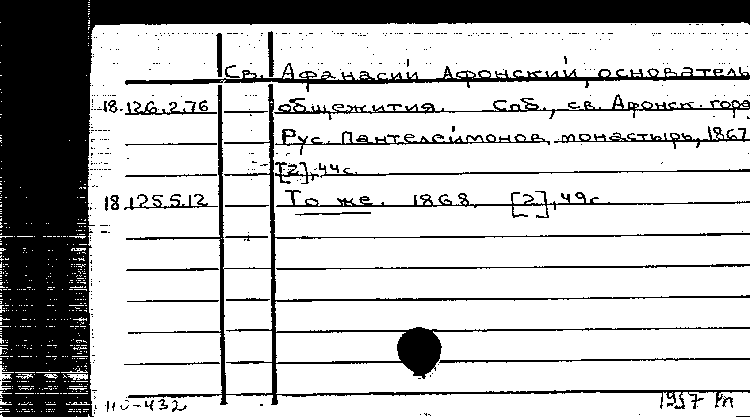 Св. Афанасий Афонский, основатель
18.126.2.76 общежития. Спб., св. Афонск. гора
Рус. Пантелеймонов. монастырь, 1867
[2], 44 с.
18.125.5.12 То же. 1868. [2], 49 с.
110-432 1957